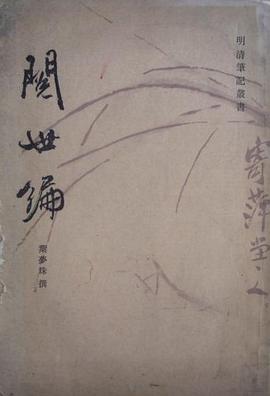 明清筆記叢書
寄萍堂
閱世編
葉夢珠撰